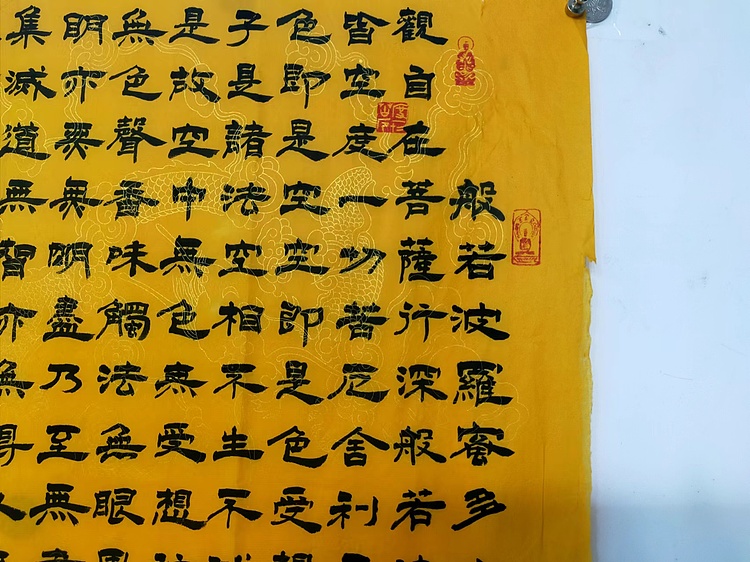 般若波羅蜜多
觀自在菩薩行深般若
皆空度一切苦厄舍利
色即是空空即是色受想
子是諸法空相不生不
是故空中無色無受想
無色聲香味觸法無眼
明亦無無明盡乃至無
集滅道無智亦無得